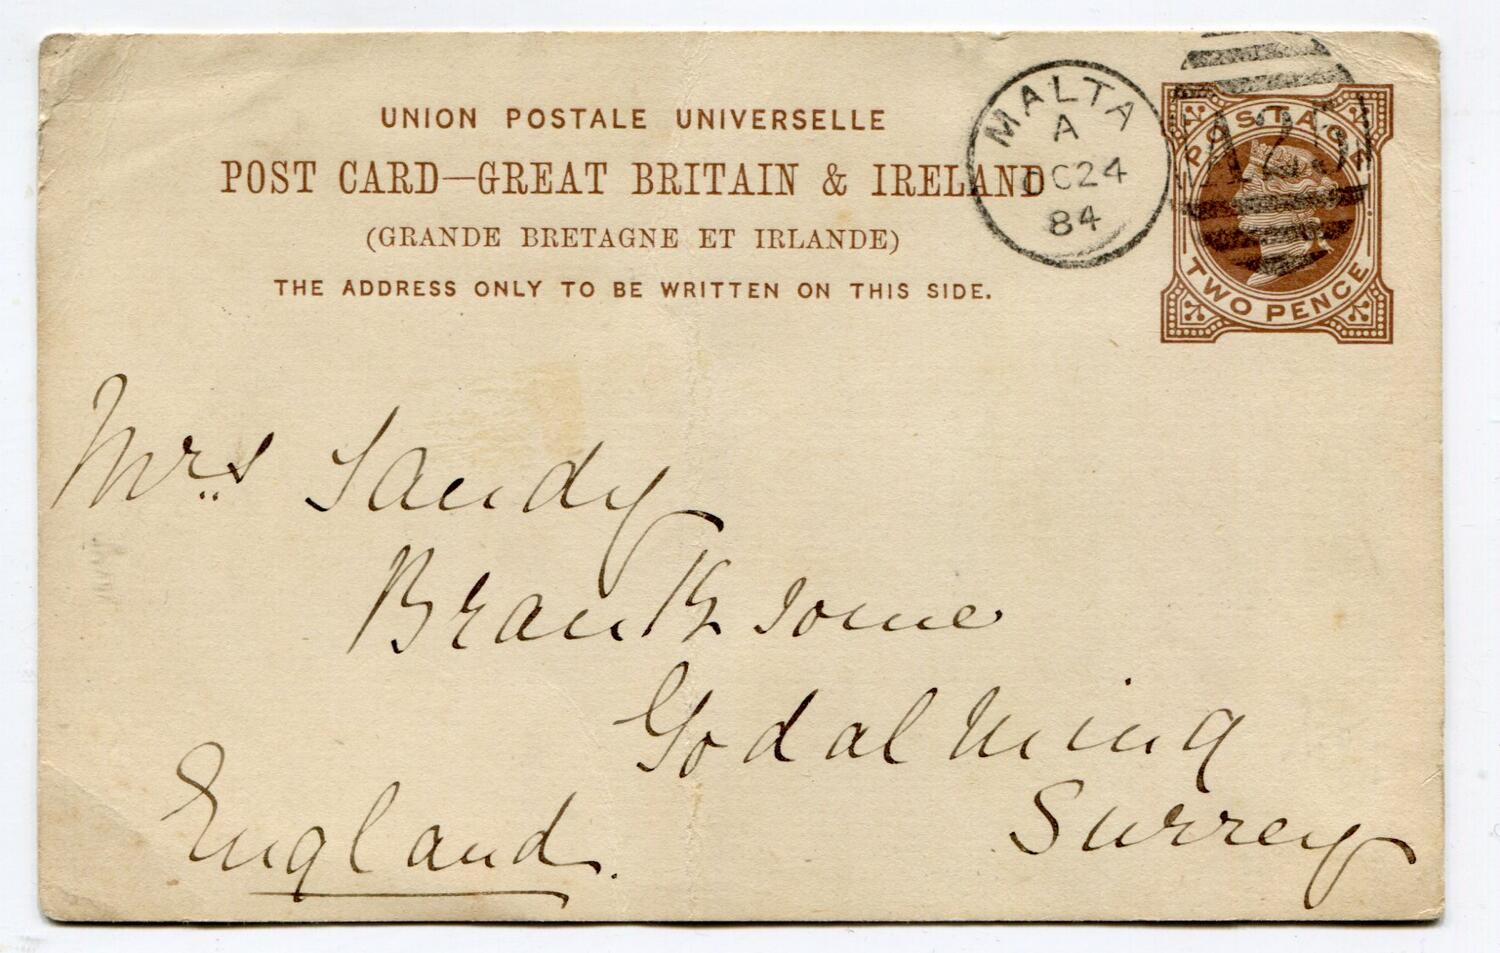 UNION POSTALE UNIVERSELLE
POST CARD—GREAT BRITAIN & IRELAND
(GRANDE BRETAGNE ET IRLANDE)
THE ADDRESS ONLY TO BE WRITTEN ON THIS SIDE.
MALTA
A
OC 24
84
A25
POSTAGE
TWO PENCE
Mrs Sandy
Branksome
Godalming
Surrey
England.